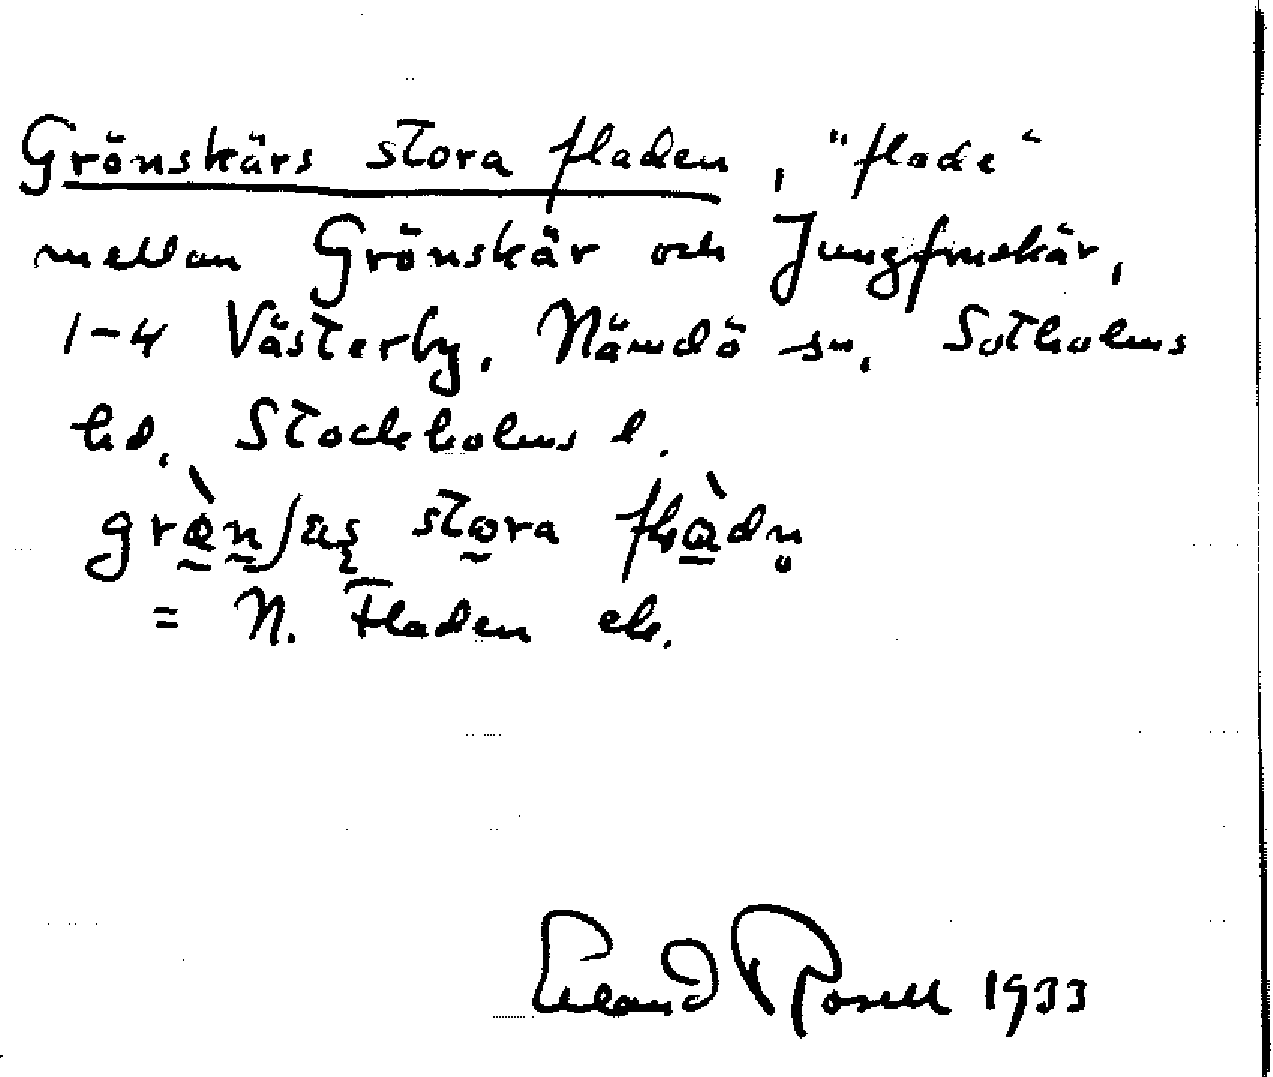 Grönskärs stora fladen, "flade"
mellan Grönskär och Jungfruskär,
1-4 Västerby, Nämdö sn, Sotholms
hd, Stockholms l.
stora
= N. Fladen ek.
Erland Rosell 1933